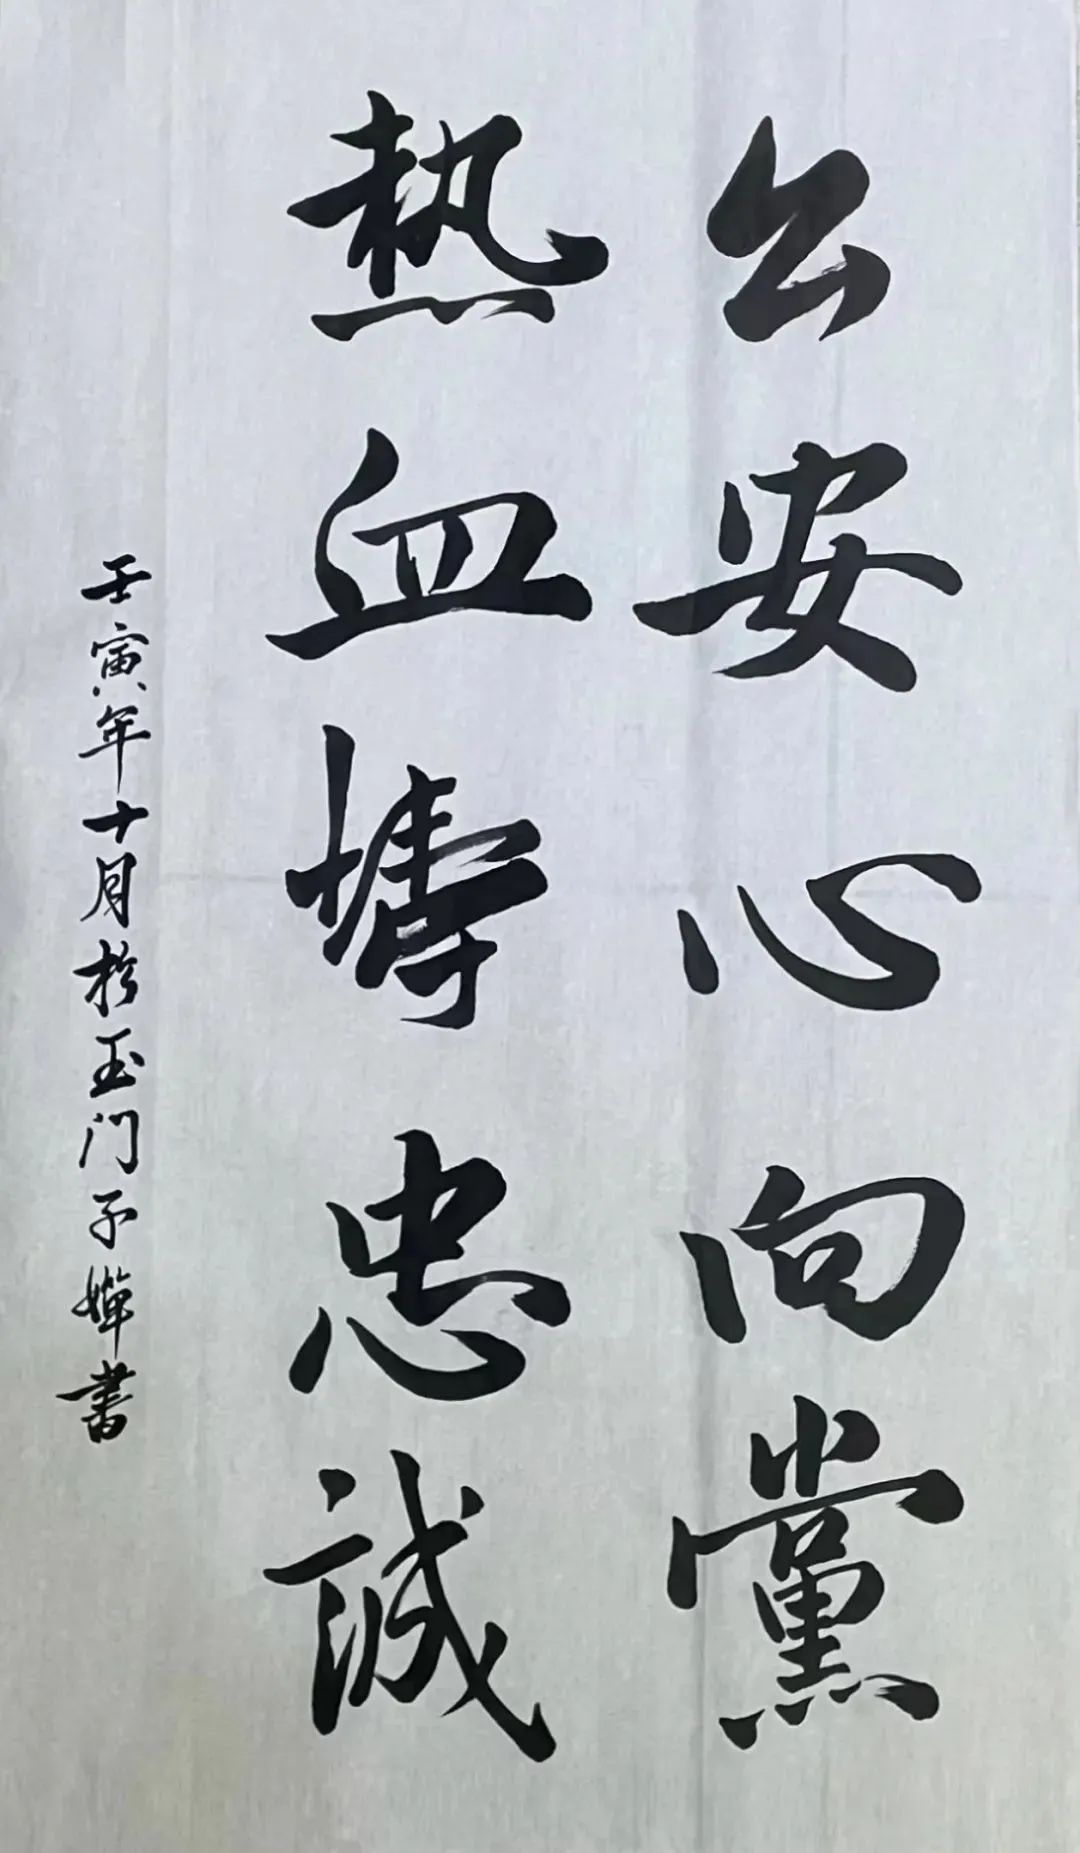 公安心向黨
熱血鑄忠誠
壬寅年十月於玉门子嬋書